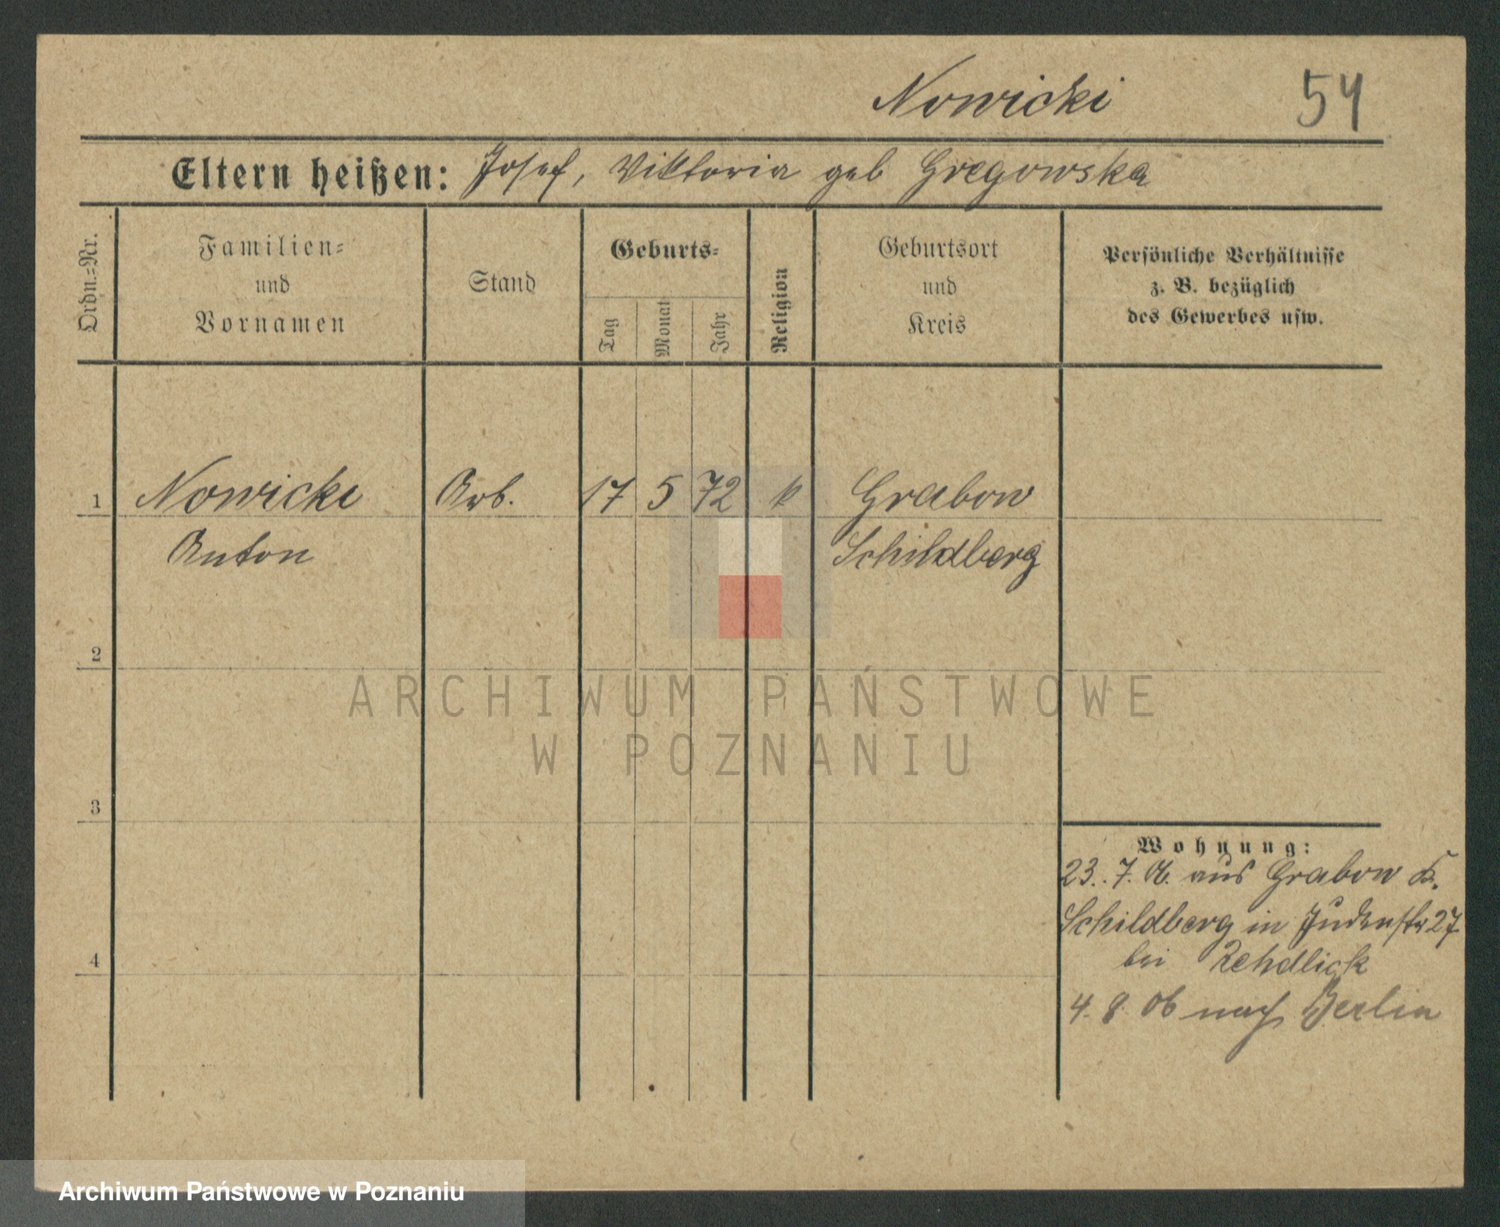 Nowicki 54
Eltern heißen: Josef, Viktoria geb Gregowska
Ordn.=Nr.
Familien=
und
Vornamen
Stand
Geburts=
Tag
Monat
Jahr
Religion
Geburtsort
und
Kreis
Persönliche Verhältnisse
z. B. bezüglich
des Gewerbes usw.
1 Nowicki Arb. 17 5 72 k Grabow
Anton Schildberg
2
ARCHIWUM PAŃSTWOWE
W POZNANIU
3
Wohnung:
23. 7. 06. aus Grabow K.
Schildberg in Judenstr 27
4
bei
4. 8. 06 nach Berlin
Archiwum Państwowe w Poznaniu